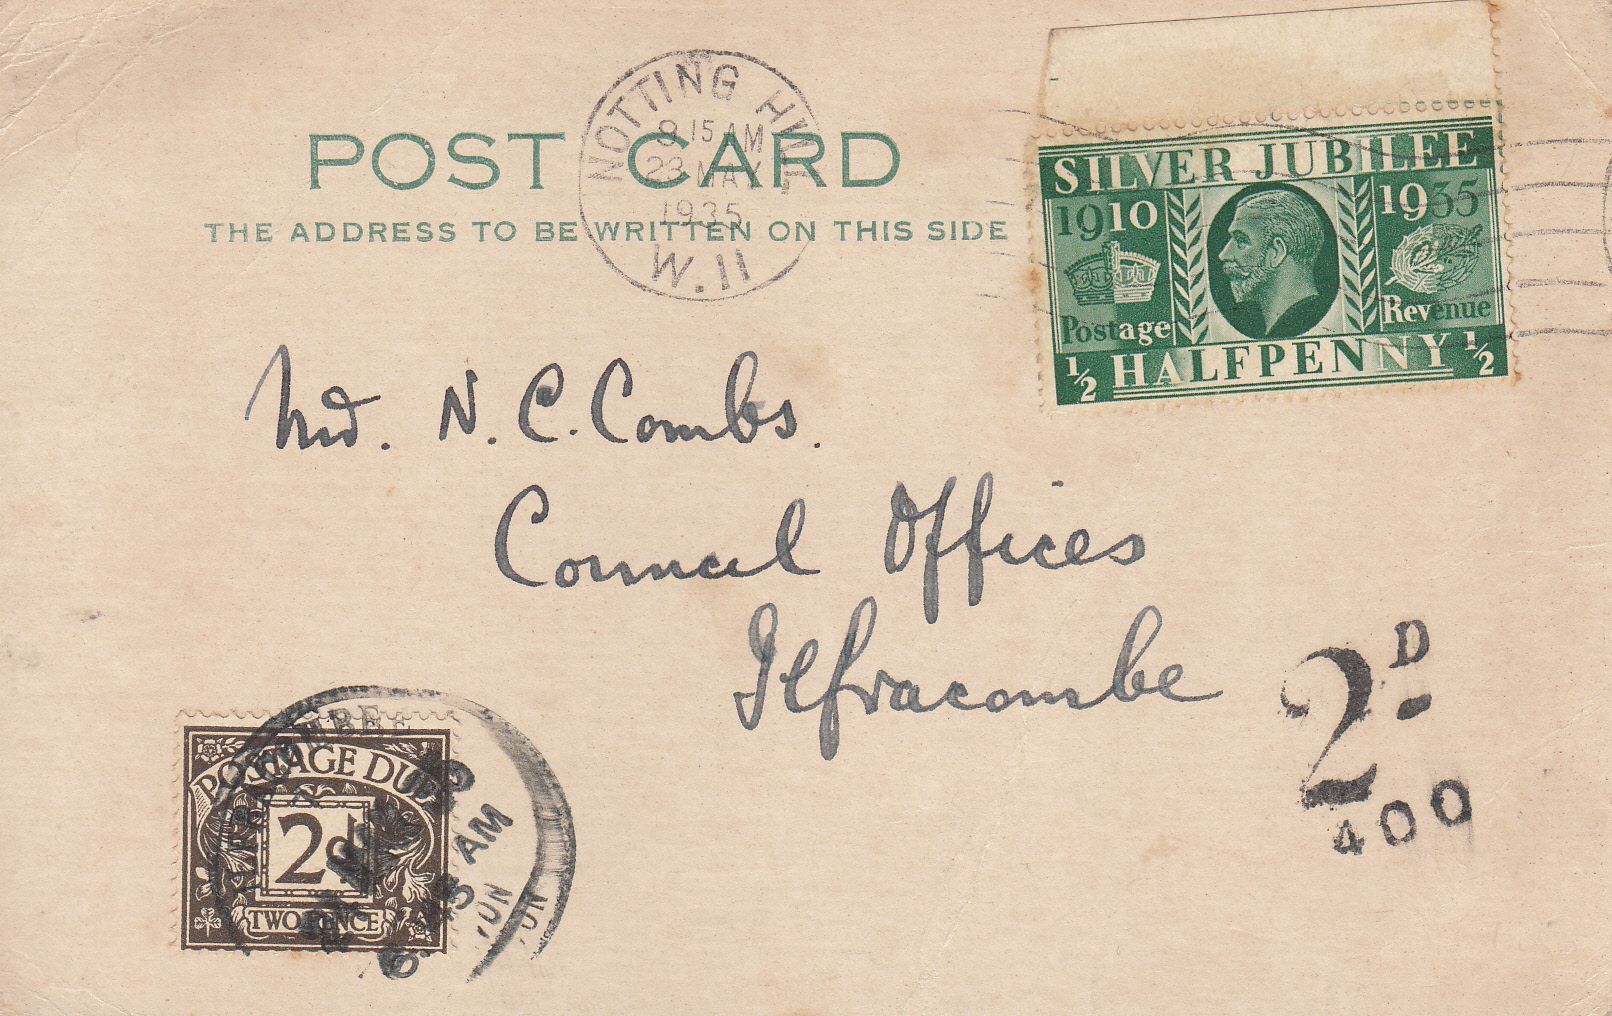 POST CARD
THE ADDRESS TO BE WRITTEN ON THIS SIDE
NOTTING HILL
8 15 AM
23 MAY
1935
W.11
SILVER JUBILEE
1910 1935
Postage Revenue
½ HALFPENNY ½
N. C. Combs.
Council Offices
Ilfracombe
2D
400
POSTAGE DUE
2d
TWO PENCE
AM